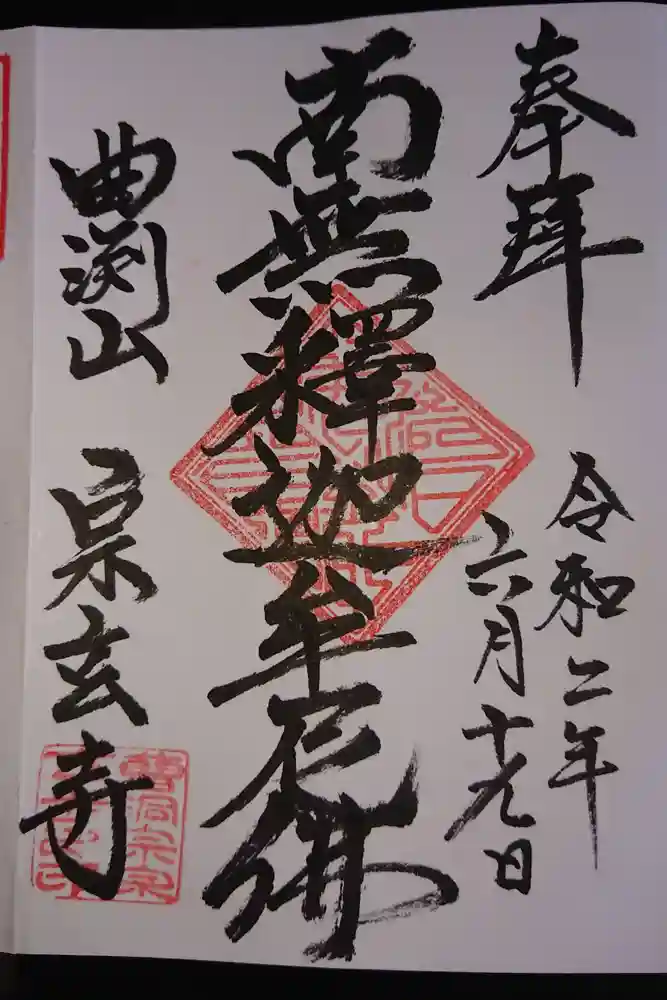 奉拜
令和二年
六月十九日
南無釋迦牟尼佛
曲渕山 宗玄寺